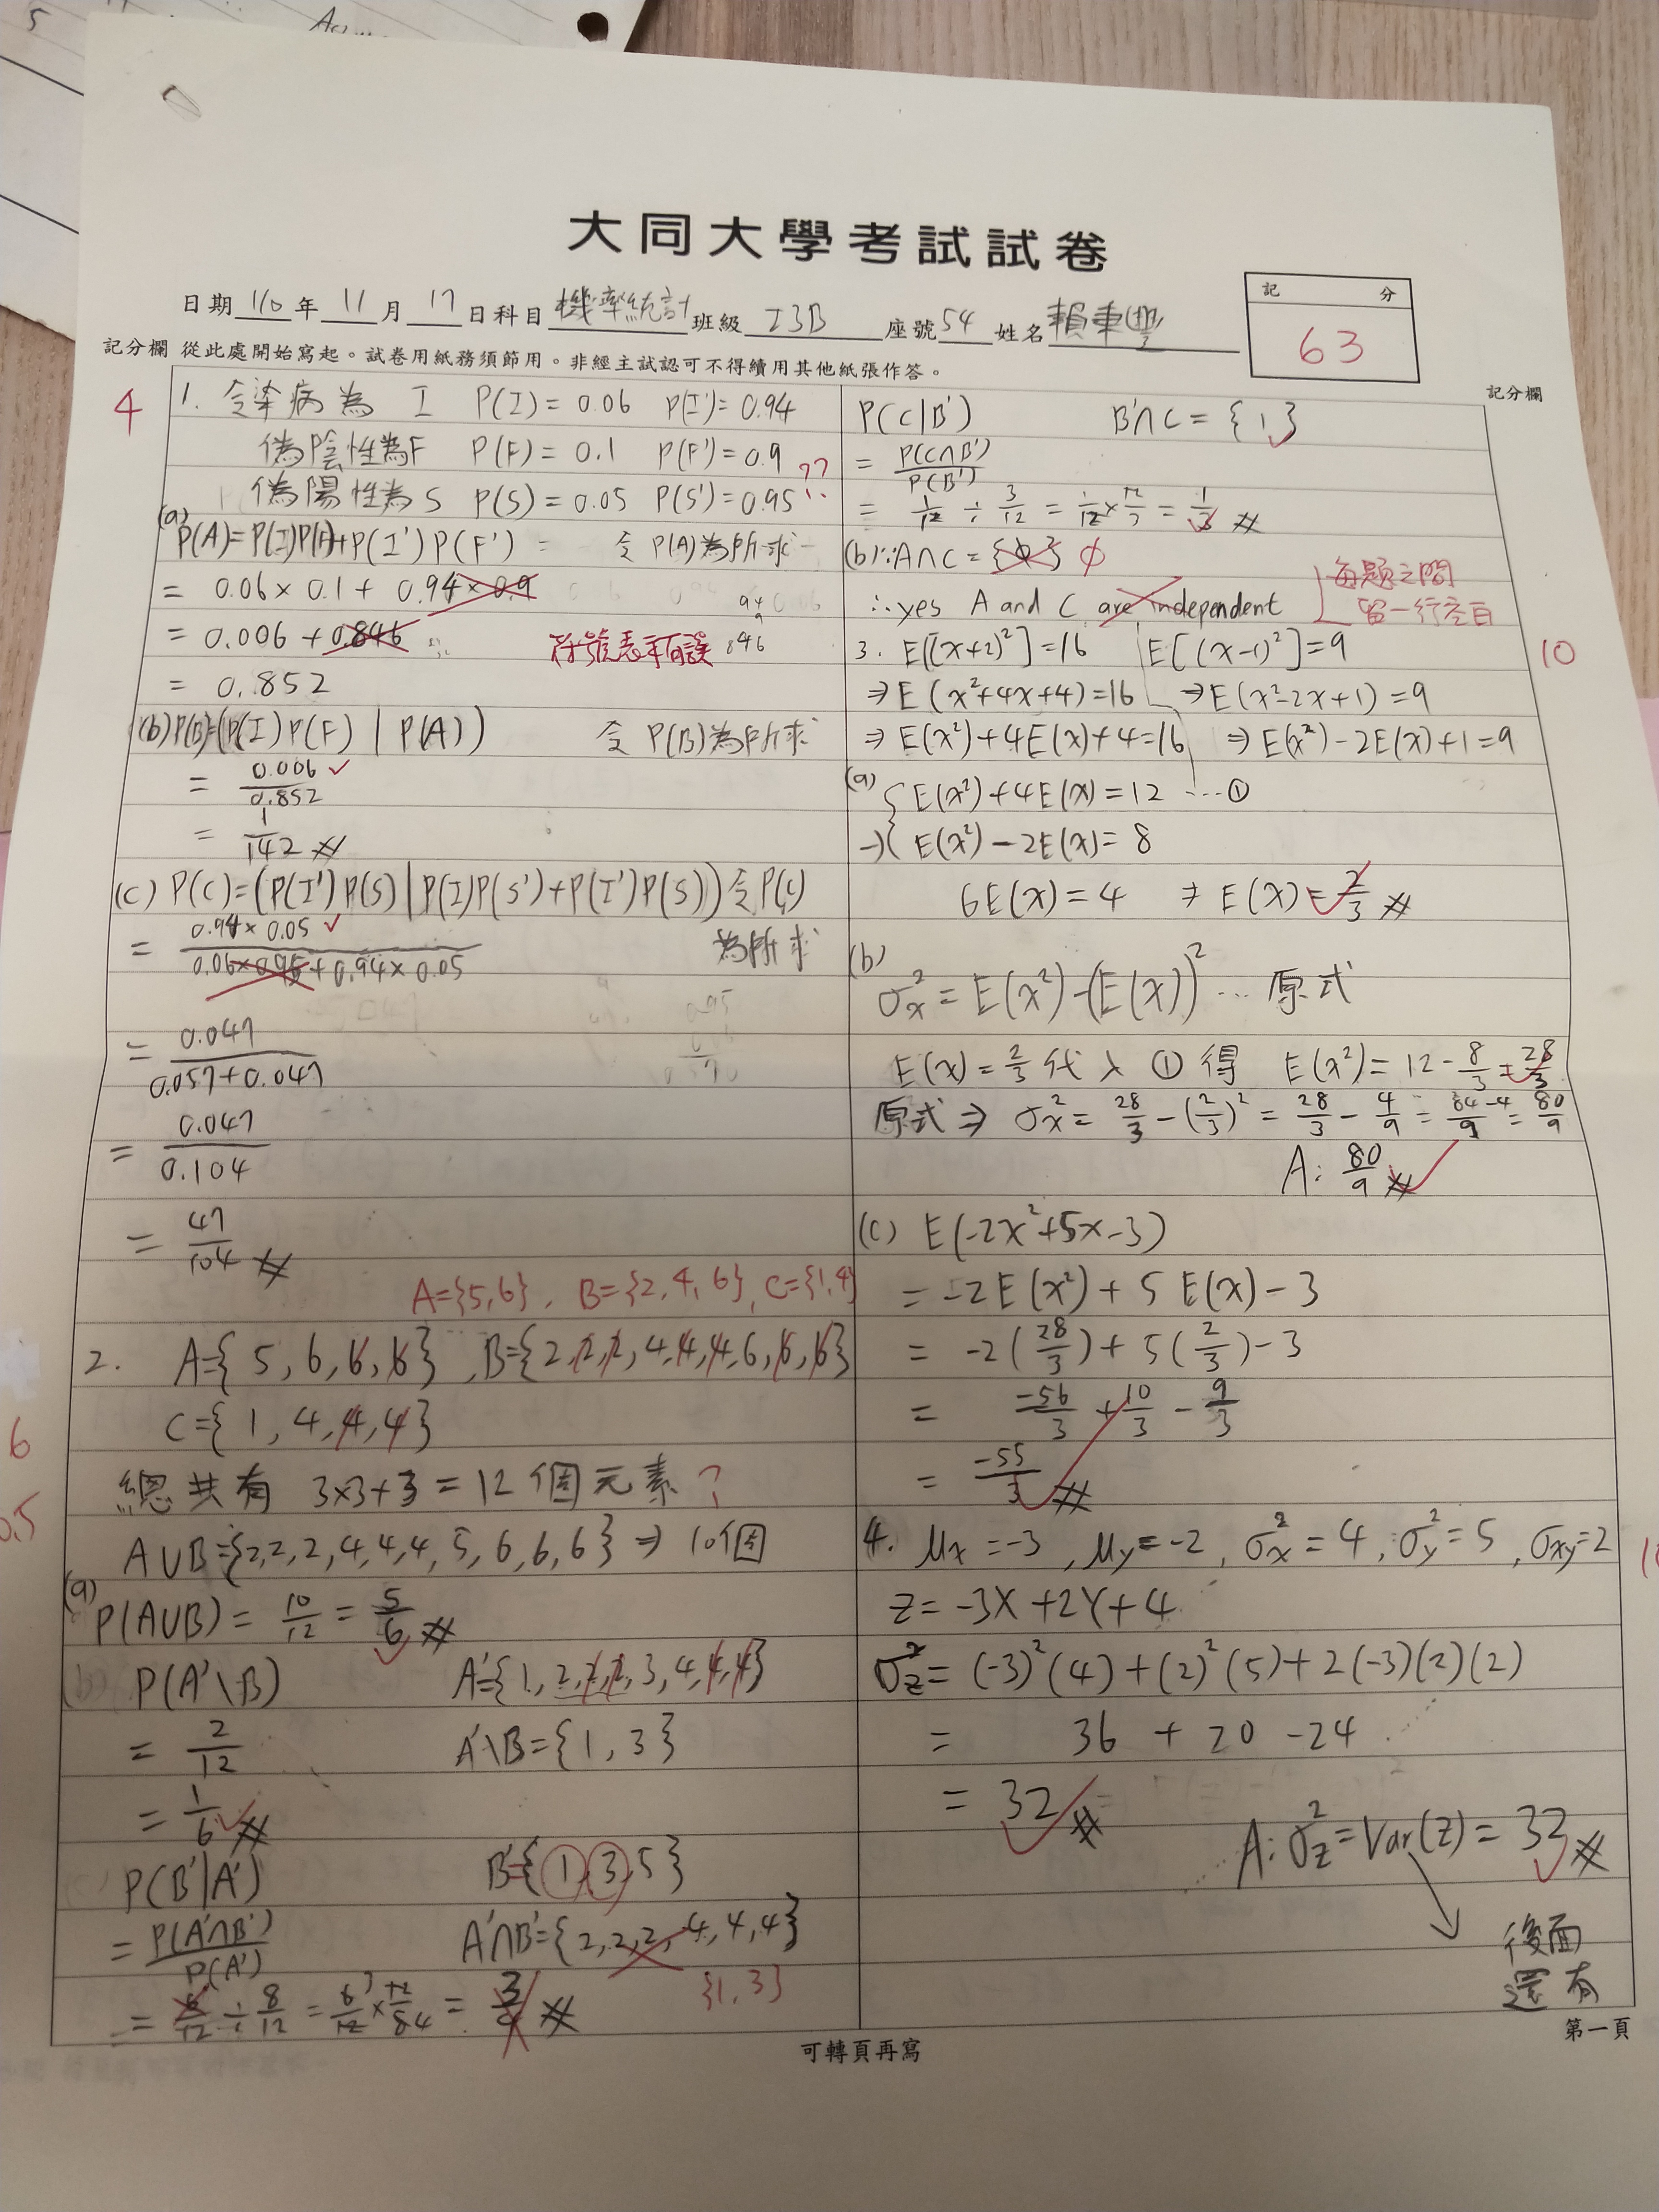 5
大同大學考試試卷
日期 110 年 11 月 17 日 科目 機率統計 班級 I3B 座號 54 姓名
記分
63
記分欄 從此處開始寫起。試卷用紙務須節用。非經主試認可不得續用其他紙張作答。
記分欄
4
1. 令染病為 I P(I)=0.06 P(I')=0.94
偽陰性為F P(F)=0.1 P(F')=0.9
偽陽性為S P(S)=0.05 P(S')=0.95 ??
(a)
P(A)=P(I)P(F)+P(I')P(F') = 令P(A)為所求
= 0.06×0.1+0.94×0.9
= 0.006+0.846
符號表示有誤
94
9
846
= 0.852
(b) P(B)=(P(I)P(F) | P(A)) 令P(B)為所求
= 0.006/0.852
= 1/142 #
(c) P(C)=(P(I')P(S)|P(I)P(S')+P(I')P(S)) 令P(C)
為所求
= 0.94×0.05/0.06×0.95+0.94×0.05
= 0.047/0.057+0.047
= 0.047/0.104
= 47/104 #
A={5,6}, B={2,4,6}, C={1,4}
2. A={5,6,6,6}, B={2,2,2,4,4,4,6,6,6}
C={1,4,4,4}
6
總共有 3×3+3=12個元素 ?
A∪B={2,2,2,4,4,4,5,6,6,6} ⇒ 10個
(a)
P(A∪B)= 10/12 = 5/6 #
(b) P(A'\B) A'={1,2,2,2,3,4,4,4}
= 2/12 A'\B={1,3}
= 1/6 #
P(B'|A') B'={1,3,5}
= P(A'∩B')/P(A') A'∩B'={2,2,2,4,4,4}
{1,3}
= 6/12 ÷ 8/12 = 6/12 × 12/8 = 3/4 #
P(C|B') B'∩C={1}
= P(C∩B')/P(B')
= 1/12 ÷ 3/12 = 1/12 × 12/3 = 1/3 #
(b) ∵A∩C={ϕ} ϕ
∴yes A and C are independent
每題之間
留一行空白
10
3. E[(x+2)²]=16 E[(x-1)²]=9
⇒E(x²+4x+4)=16 ⇒E(x²-2x+1)=9
⇒E(x²)+4E(x)+4=16 ⇒E(x²)-2E(x)+1=9
(a) { E(x²)+4E(x)=12 ...①
→ { E(x²)-2E(x)=8
6E(x)=4 ⇒ E(x)=2/3 #
(b)
σx²=E(x²)-(E(x))² ... 原式
E(x)=2/3 代入 ① 得 E(x²)=12-8/3=28/3
原式⇒ σx²=28/3-(2/3)²=28/3-4/9=84-4/9=80/9
A: 80/9 #
(c) E(-2x²+5x-3)
= -2E(x²)+5E(x)-3
= -2(28/3)+5(2/3)-3
= -56/3+10/3-9/3
= -55/3 #
4. μx=-3, μy=-2, σx²=4, σy²=5, σxy=2
z=-3X+2Y+4
σz²=(-3)²(4)+(2)²(5)+2(-3)(2)(2)
= 36+20-24
= 32 #
A: σz²=Var(z)=32 #
後面
還有
第一頁
可轉頁再寫